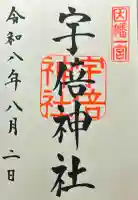 因幡一宮
宇倍神社
宇倍神社
令和八年八月二日